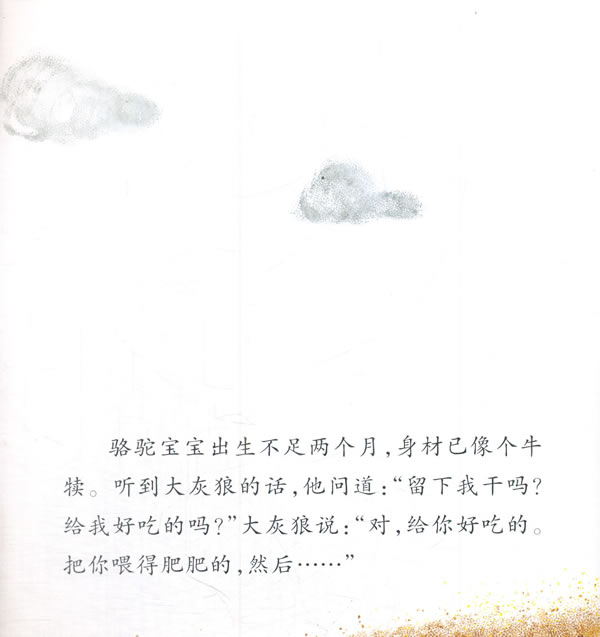 骆驼宝宝出生不足两个月，身材已像个牛
犊。听到大灰狼的话，他问道：“留下我干吗？
给我好吃的吗？”大灰狼说：“对，给你好吃的。
把你喂得肥肥的，然后……”